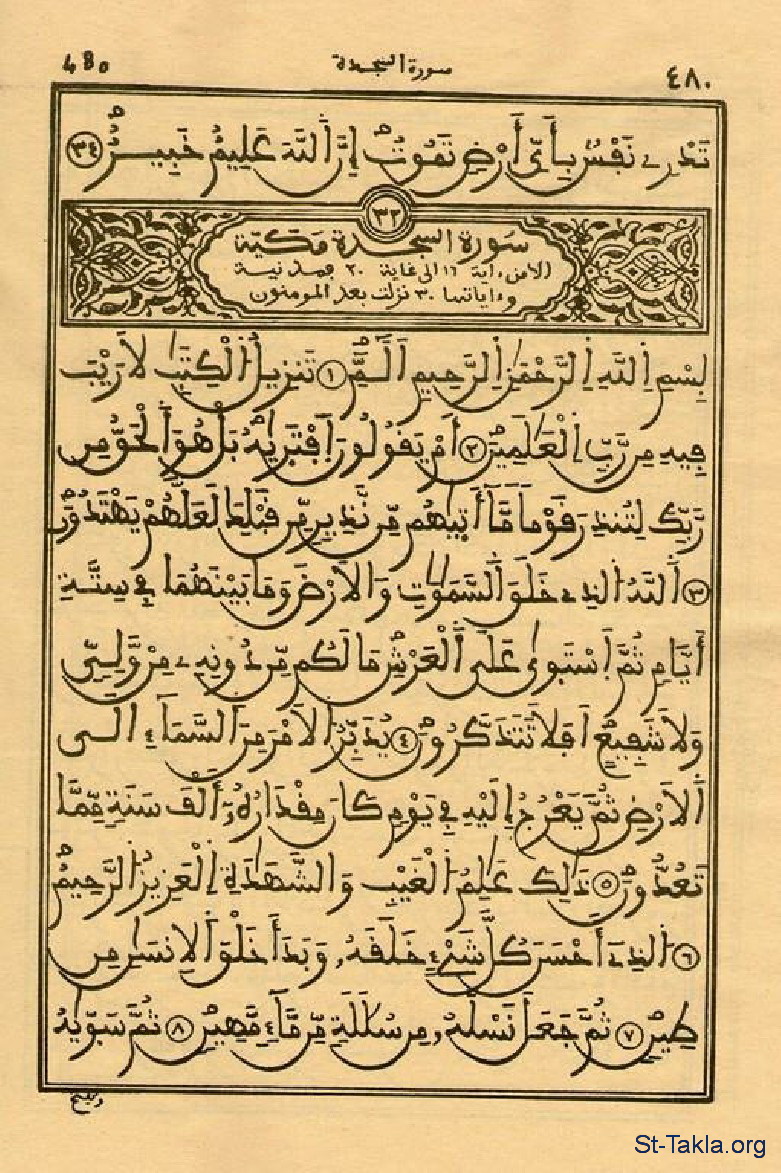 ٤٨٠ سورة السجدة 480
تَدْرِے نَفْسٌ بِأَيِّ أَرْضٍ تَمُوتُ إِنَّ اَللَّهَ عَلِيمٌ خَبِيرٌ ٣٤
٣٢
سورة السجدة مكية
الا من ءاية ١٦ الى غاية ٢٠ فمدنية
وءاياتها ٣٠ نزلت بعد المومنون
بِسْمِ اِللَّهِ اِلرَّحْمَٰنِ اِلرَّحِيمِ أَلَٓمِّٓ ١ تَنزِيلُ اُلْكِتَٰبِ لَا رَيْبَ
فِيهِ مِن رَّبِّ اِلْعَٰلَمِينَ ٢ أَمْ يَقُولُونَ اَفْتَرَيٰهُ بَلْ هُوَ اَلْحَقُّ مِن
رَّبِّكَ لِتُنذِرَ قَوْماً مَّآ أَتَيٰهُم مِّن نَّذِيرٍ مِّن قَبْلِكَ لَعَلَّهُمْ يَهْتَدُونَ
٣ اَللَّهُ اُلذِے خَلَقَ اَلسَّمَٰوَٰتِ وَالَارْضَ وَمَا بَيْنَهُمَا فِے سِتَّةِ
أَيَّامٍ ثُمَّ اَسْتَوىٰ عَلَى اَلْعَرْشِ مَا لَكُم مِّن دُونِهِۦ مِنْ وَّلِيٍّ
وَلَا شَفِيعٍ اَفَلَا تَتَذَكَّرُونَ ٤ يُدَبِّرُ اُلَامْرَ مِنَ اَلسَّمَآءِ الَى
اَلَارْضِ ثُمَّ يَعْرُجُ إِلَيْهِ فِے يَوْمٍ كَانَ مِقْدَارُهُۥٓ أَلْفَ سَنَةٍ مِّمَّا
تَعُدُّونَ ٥ ذَٰلِكَ عَٰلِمُ اُلْغَيْبِ وَالشَّهَٰدَةِ اِلْعَزِيزُ اُلرَّحِيمُ
٦ اُلذِےٓ أَحْسَنَ كُلَّ شَےْءٍ خَلَقَهُۥ وَبَدَأَ خَلْقَ اَلِانسَٰنِ مِن
طِينٍ ٧ ثُمَّ جَعَلَ نَسْلَهُۥ مِن سُلَٰلَةٍ مِّن مَّآءٍ مَّهِينٍ ٨ ثُمَّ سَوّيٰهُ
ونفخ
St-Takla.org